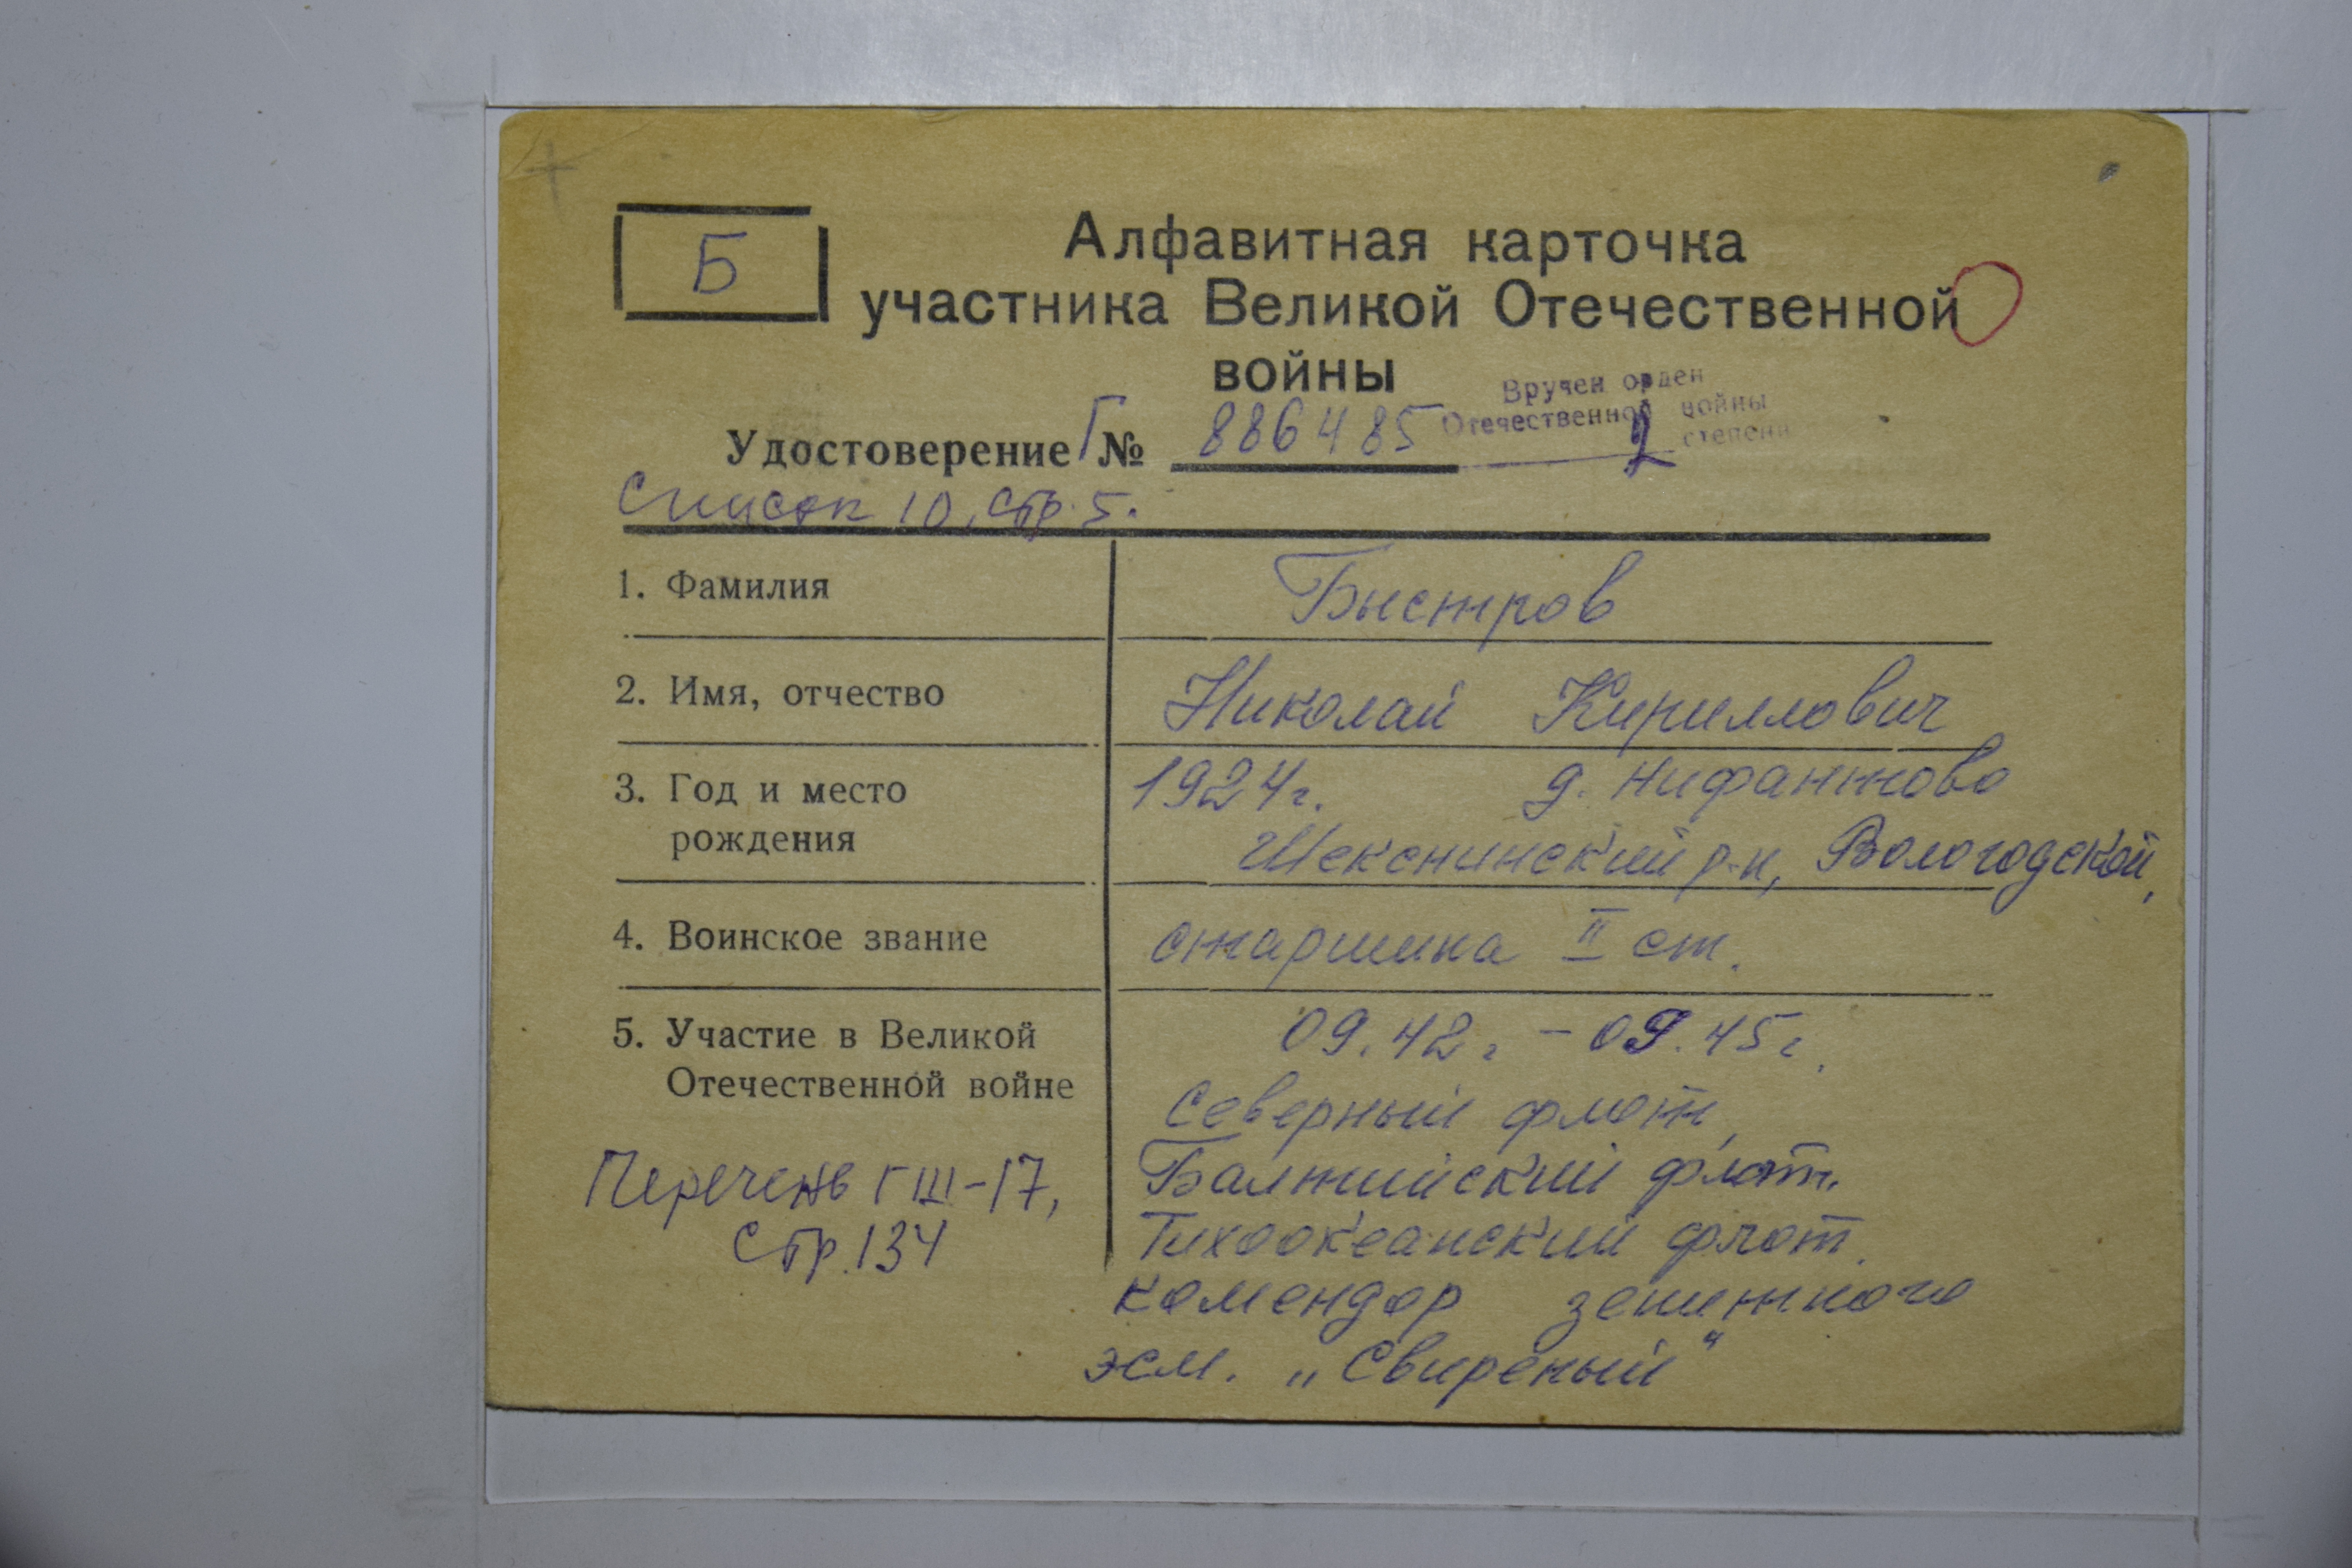 Б
Алфавитная карточка
участника Великой Отечественной
войны
Вручен орден
Отечественной войны
2 степени
Удостоверение Г № 886485
Список 10, стр. 5.
1. Фамилия
Быстров
2. Имя, отчество
Николай Кириллович
3. Год и место
рождения
1924г. д. Нифантово
Шекснинский р-н, Вологодской,
4. Воинское звание
старшина II ст.
5. Участие в Великой
Отечественной войне
09.42г - 09.45г.
Северный флот,
Балтийский флот.
Тихоокеанский флот.
комендор зенитного
эсм. „Свирепый"
Перечень ГШ-17,
стр. 134